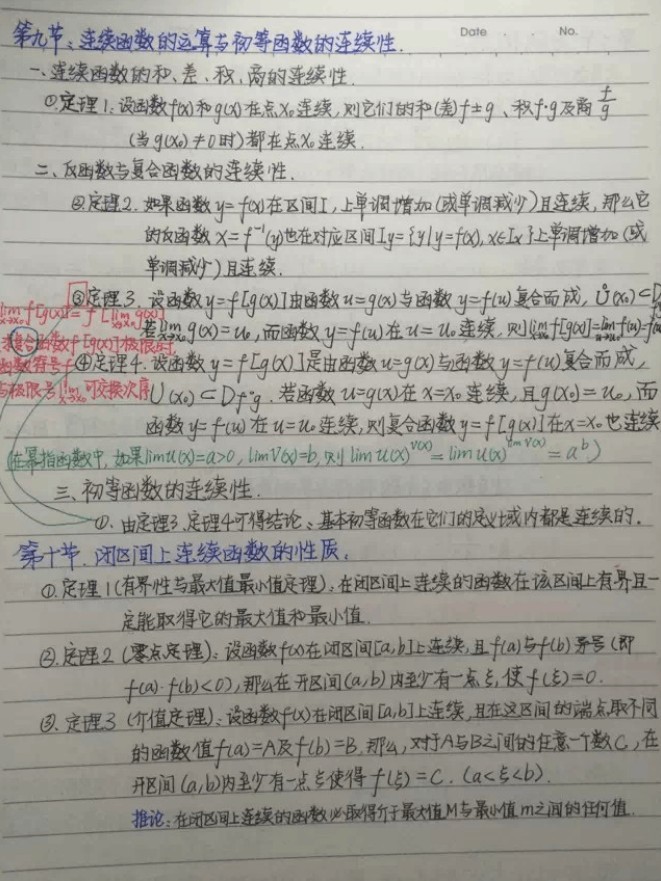 Date No.
第九节、连续函数的运算与初等函数的连续性.
一、连续函数的和、差、积、商的连续性.
①定理1:设函数f(x)和g(x)在点x₀连续,则它们的和(差)f±g、积f·g及商f/g
(当g(x₀)≠0时)都在点x₀连续.
二、反函数与复合函数的连续性.
②定理2.如果函数y=f(x)在区间Iₓ上单调增加(或单调减少)且连续,那么它
的反函数x=f⁻¹(y)也在对应区间Iy={y|y=f(x),x∈Iₓ}上单调增加(或
单调减少)且连续.
③定理3.设函数y=f[g(x)]由函数u=g(x)与函数y=f(u)复合而成,Ů(x₀)⊂D
若lim x→x₀ g(x)=u₀,而函数y=f(u)在u=u₀连续,则lim x→x₀ f[g(x)]=lim u→u₀ f(u)=f(u₀
lim x→x₀ f[g(x)]=f[lim x→x₀ g(x)]
求复合函数f[g(x)]极限时,
函数符号f
与极限号lim x→x₀可交换次序
④定理4.设函数y=f[g(x)]是由函数u=g(x)与函数y=f(u)复合而成,
U(x₀)⊂Df∘g.若函数u=g(x)在x=x₀连续,且g(x₀)=u₀,而
函数y=f(u)在u=u₀连续,则复合函数y=f[g(x)]在x=x₀也连续
(在幂指函数中,如果limu(x)=a>0,limV(x)=b,则lim u(x)^V(x)=lim u(x)^limV(x)=a^b.)
三、初等函数的连续性.
①.由定理3.定理4可得结论:基本初等函数在它们的定义域内都是连续的.
第十节.闭区间上连续函数的性质.
①.定理1(有界性与最大值最小值定理):在闭区间上连续的函数在该区间上有界且一
定能取得它的最大值和最小值.
②.定理2(零点定理):设函数f(x)在闭区间[a,b]上连续,且f(a)与f(b)异号(即
f(a)·f(b)<0),那么在开区间(a,b)内至少有一点ξ,使f(ξ)=0.
③.定理3(介值定理):设函数f(x)在闭区间[a,b]上连续,且在这区间的端点取不同
的函数值f(a)=A及f(b)=B.那么,对于A与B之间的任意一个数C,在
开区间(a,b)内至少有一点ξ使得f(ξ)=C.(a<ξ<b).
推论:在闭区间上连续的函数必取得介于最大值M与最小值m之间的任何值.